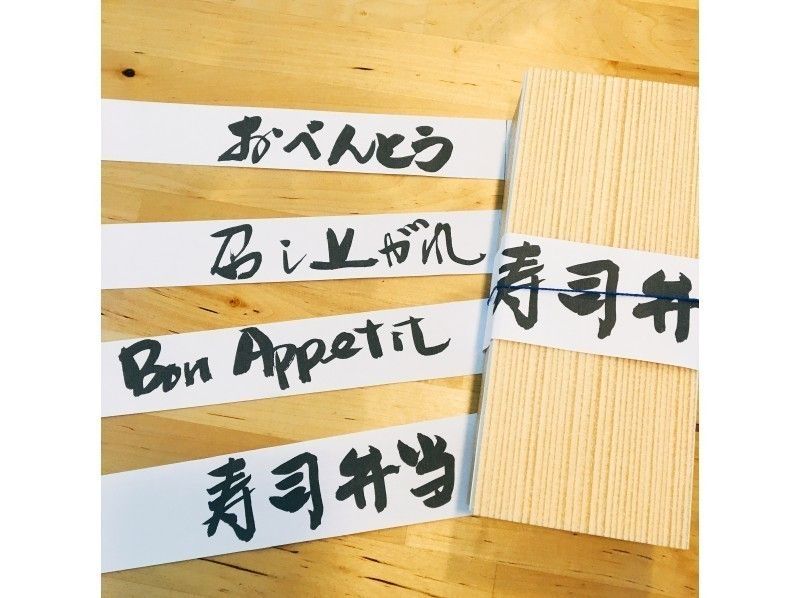 おべんとう
召し上がれ
Bon Appetit
寿司弁当
寿司弁